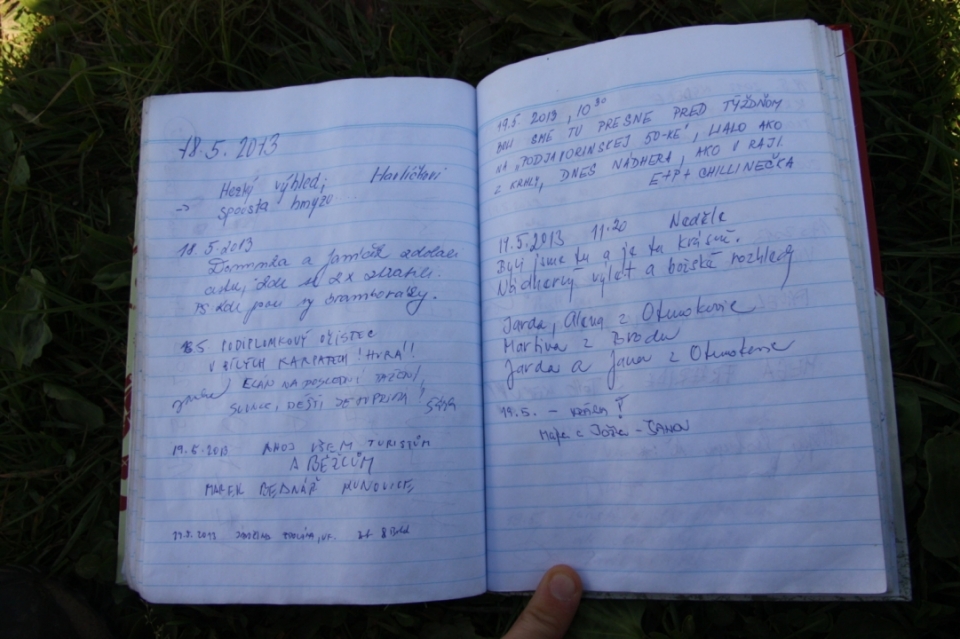 18.5.2013
Hezký výhled, Havlíčkovi
→ spousta hmyzu
18.5.2013
Dominika a
se 2x ztratili.
PS kde jsou ty bramboráky.
18.5. PODIPLOMKOVÝ OČISTEC
V BÍLÝCH KARPATECH! HURÁ!!
ELÁN NA POSLEDNÍ TAŽENÍ!
SLUNCE, DÉŠŤ
19.5.2013 AHOJ VŠEM TURISTŮM
A BĚŽCŮM
MAREK BEDNÁŘ HUNOVICE
19.5.2013
19.5.2013, 10³⁰
BOLI SME TU PRESNE PRED TÝŽDŇOM
NA „PODJAVORINSKEJ 50-KE", LIALO AKO
Z KRHLY, DNES NÁDHERA, AKO V RAJI.
E+P+ CHILLINEČKA
19.5.2013 11.20 Neděle
Byli jsme tu a je tu krásně.
Nádherný výlet a božské rozhledy
Jarda, Alena z Otrokovic
Martina z Brodu
Jarda a Jana z Otrokovic
19.5. –
Maja a Jožka – ŠANOV